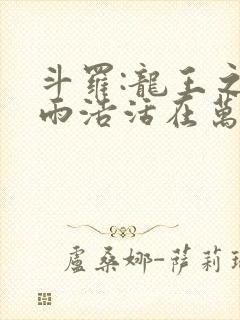 斗羅:龍王之
雨浩活在萬
盧桑娜-薩莉